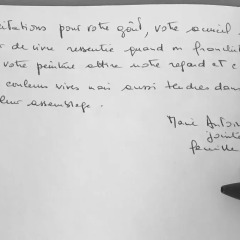 citations pour votre goût, votre accueil
de vivre ressentie quand on franchit
votre peinture attire notre regard et c
couleurs vives mais aussi tendres dans
leur assemblage.
Marie Anto
jointe
famille